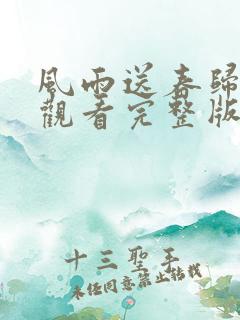 風雨送春歸
觀看完整版
十三聖手
未經同意禁止轉載